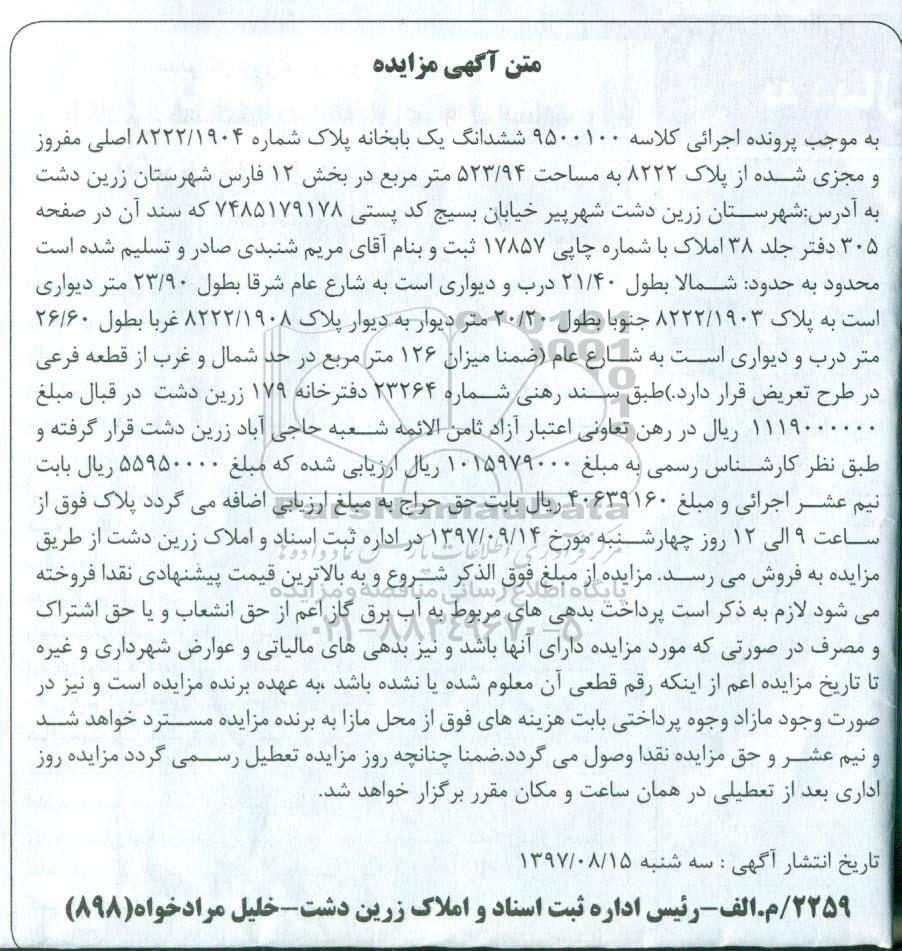 متن آگهی مزایده
به موجب پرونده اجرائی کلاسه ۹۵۰۰۱۰۰ ششدانگ یک بابخانه پلاک شماره ۸۲۲۲/۱۹۰۴ اصلی مفروز
و مجزی شده از پلاک ۸۲۲۲ به مساحت ۵۲۳/۹۴ متر مربع در بخش ۱۲ فارس شهرستان زرین دشت
به آدرس:شهرستان زرین دشت شهرپیر خیابان بسیج کد پستی ۷۴۸۵۱۷۹۱۷۸ که سند آن در صفحه
۳۰۵ دفتر جلد ۳۸ املاک با شماره چاپی ۱۷۸۵۷ ثبت و بنام آقای مریم شنبدی صادر و تسلیم شده است
محدود به حدود: شمالا بطول ۲۱/۴۰ درب و دیواری است به شارع عام شرقا بطول ۲۳/۹۰ متر دیواری
است به پلاک ۸۲۲۲/۱۹۰۳ جنوبا بطول ۲۰/۲۰ متر دیوار به دیوار پلاک ۸۲۲۲/۱۹۰۸ غربا بطول ۲۶/۶۰
متر درب و دیواری است به شارع عام (ضمنا میزان ۱۲۶ متر مربع در حد شمال و غرب از قطعه فرعی
در طرح تعریض قرار دارد.)طبق سند رهنی شماره ۲۳۲۶۴ دفترخانه ۱۷۹ زرین دشت در قبال مبلغ
۱۱۱۹۰۰۰۰۰۰ ریال در رهن تعاونی اعتبار آزاد ثامن الائمه شعبه حاجی آباد زرین دشت قرار گرفته و
طبق نظر کارشناس رسمی به مبلغ ۱۰۱۵۹۷۹۰۰۰ ریال ارزیابی شده که مبلغ ۵۵۹۵۰۰۰۰ ریال بابت
نیم عشر اجرائی و مبلغ ۴۰۶۳۹۱۶۰ ریال بابت حق حراج به مبلغ ارزیابی اضافه می گردد پلاک فوق از
ساعت ۹ الی ۱۲ روز چهارشنبه مورخ ۱۳۹۷/۰۹/۱۴ در اداره ثبت اسناد و املاک زرین دشت از طریق
مزایده به فروش می رسد. مزایده از مبلغ فوق الذکر شروع و به بالاترین قیمت پیشنهادی نقدا فروخته
می شود لازم به ذکر است پرداخت بدهی های مربوط به آب برق گاز اعم از حق انشعاب و یا حق اشتراک
و مصرف در صورتی که مورد مزایده دارای آنها باشد و نیز بدهی های مالیاتی و عوارض شهرداری و غیره
تا تاریخ مزایده اعم از اینکه رقم قطعی آن معلوم شده یا نشده باشد .به عهده برنده مزایده است و نیز در
صورت وجود مازاد وجوه پرداختی بابت هزینه های فوق از محل مازا به برنده مزایده مسترد خواهد شد
و نیم عشر و حق مزایده نقدا وصول می گردد.ضمنا چنانچه روز مزایده تعطیل رسمی گردد مزایده روز
اداری بعد از تعطیلی در همان ساعت و مکان مقرر برگزار خواهد شد.
تاریخ انتشار آگهی : سه شنبه ۱۳۹۷/۰۸/۱۵
۲۲۵۹/م.الف-رئیس اداره ثبت اسناد و املاک زرین دشت-خلیل مرادخواه(۸۹۸)
ParsNamadData
مرکز فرآوری اطلاعات پارس نماد داده ها
پایگاه اطلاع رسانی مناقصه و مزایده
۰۲۱-۸۸۳۴۹۶۷۰-۵